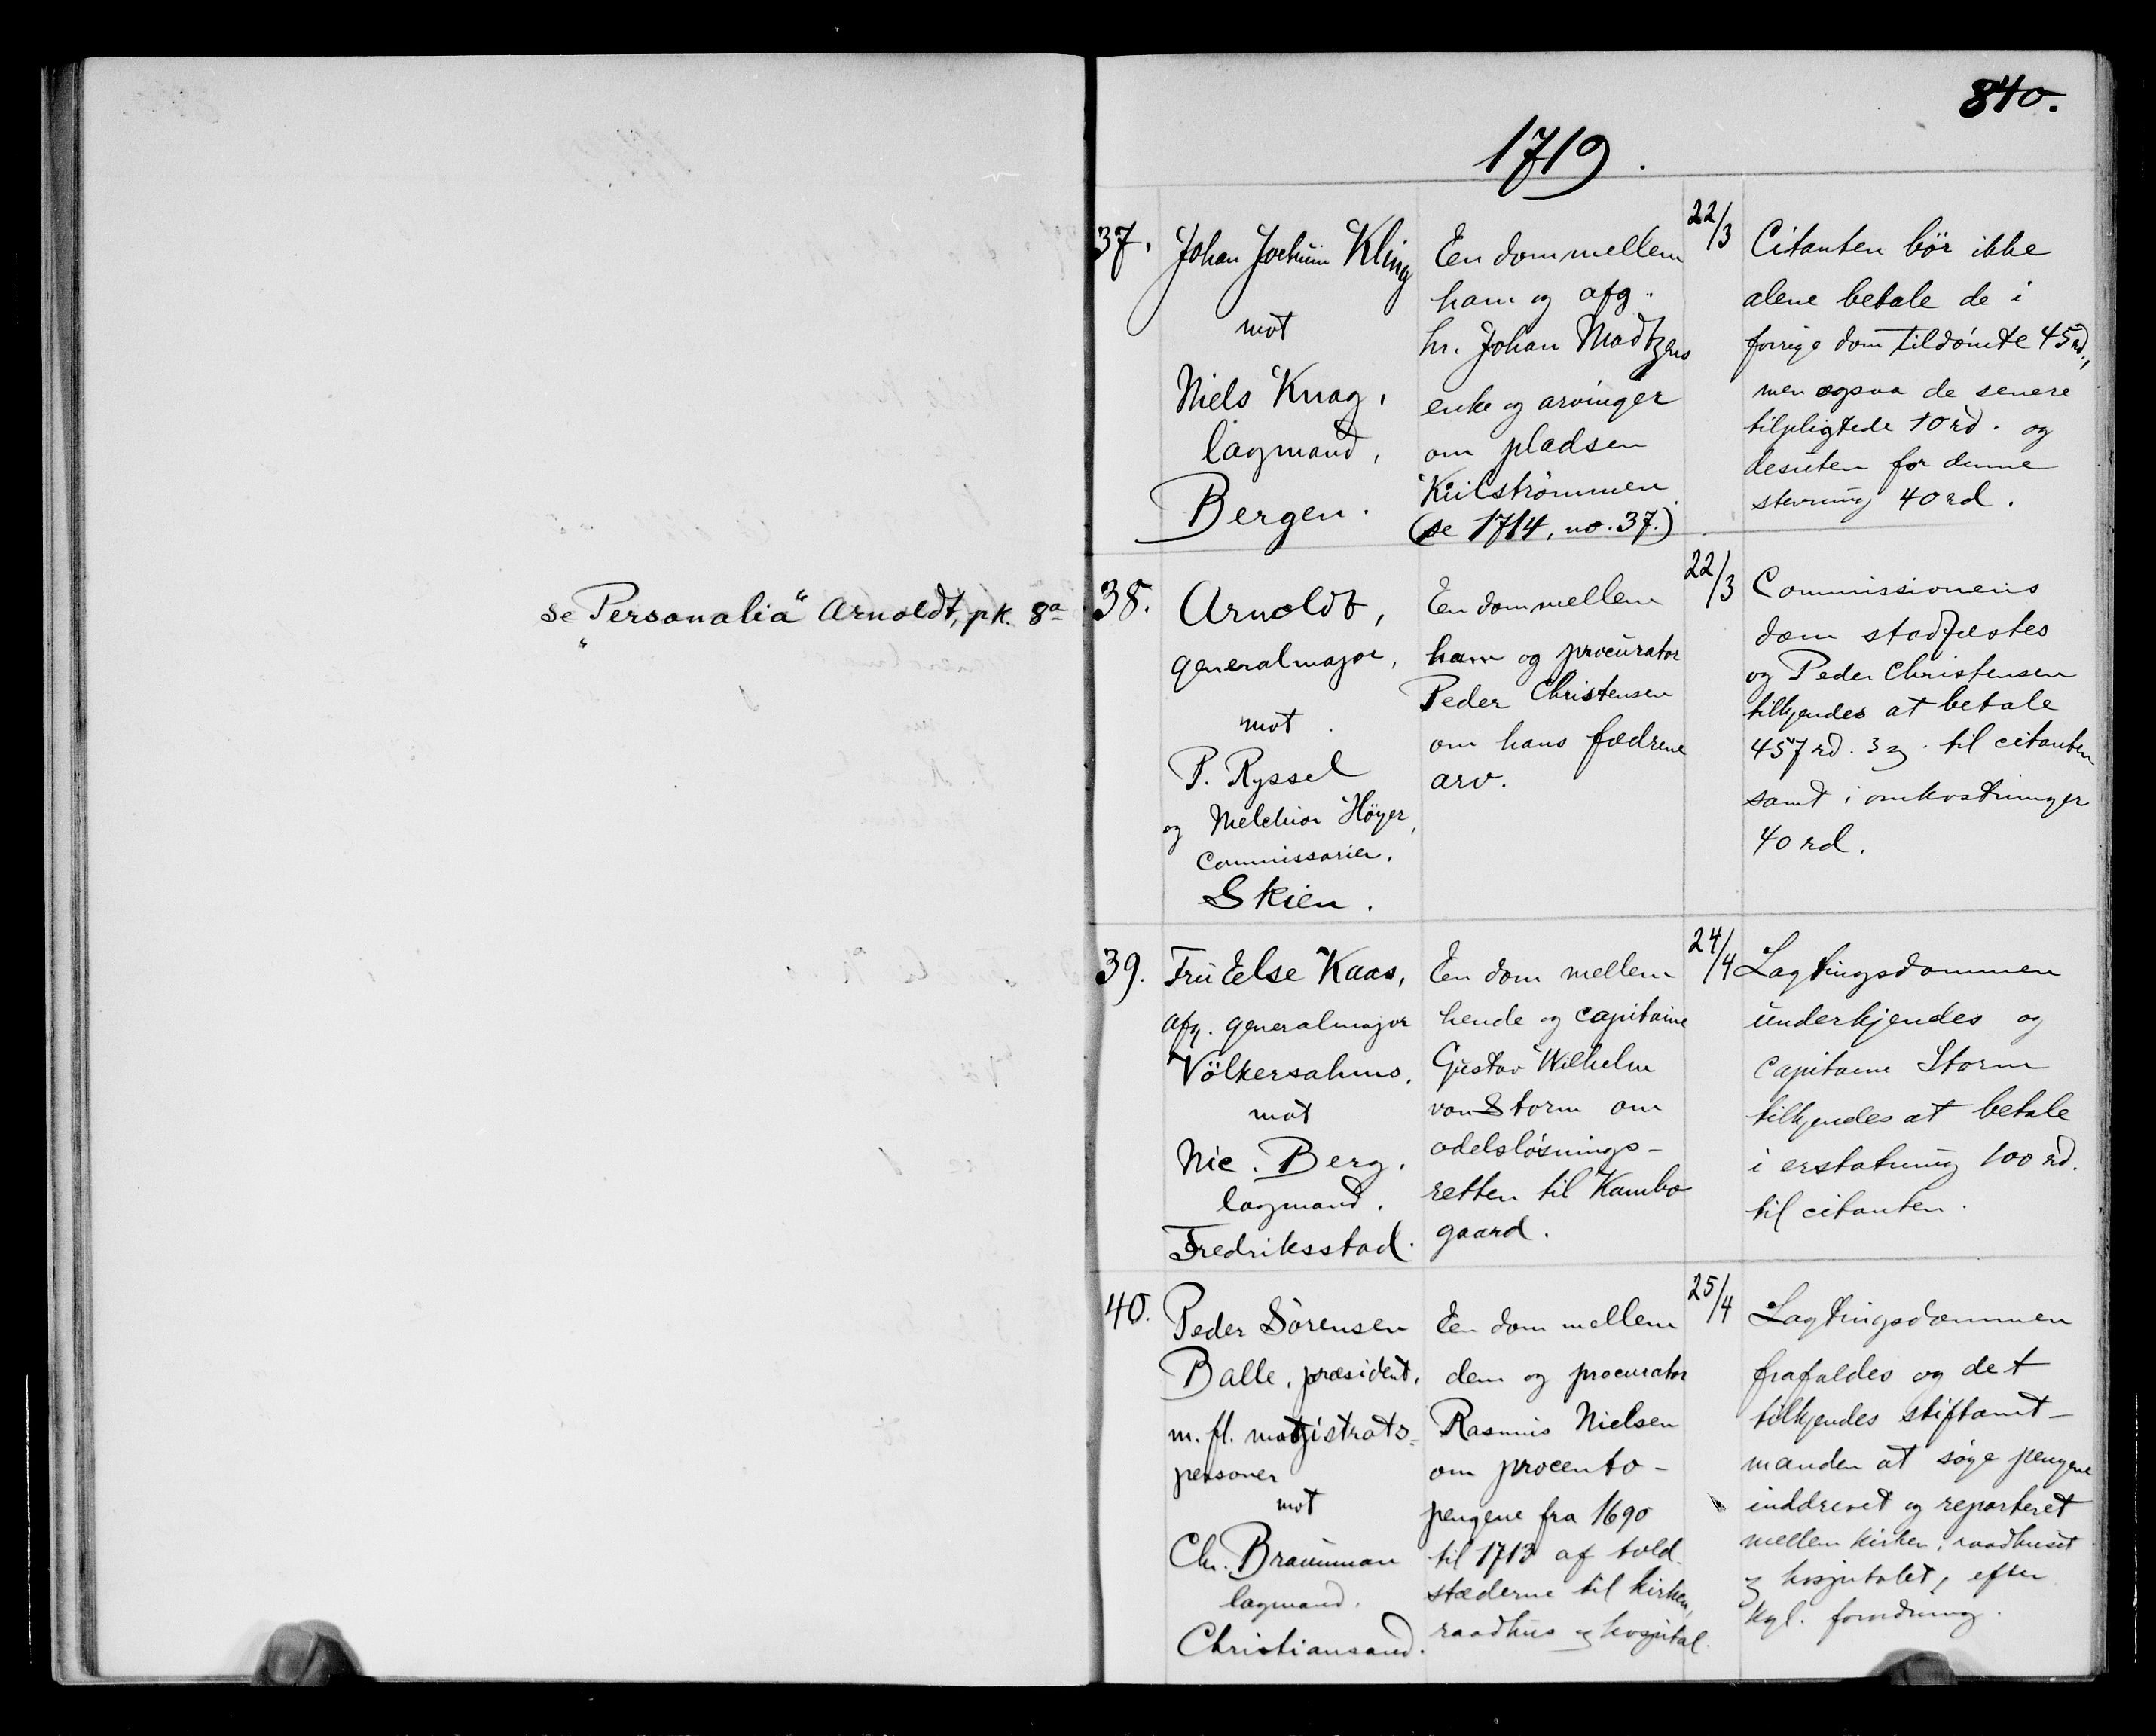 840.
1719.
se "Personalia" Arnoldt, pk. 8a
37.
Johan Jochum Kling
mot
Niels Knag,
lagmand,
Bergen.
En dom mellem
ham og afg.
hr. Johan Madtzens
enke og arvinger
om pladsen
Kiilströmmen
(se 1714, no. 37.)
22/3
Citanten bör ikke
alene betale de i
forrige dom tildömte 45 rd.,
men ogsaa de senere
tilpligtede 10 rd. og
desuten for denne
stevning 40 rd.
38.
Arnoldt,
generalmajor,
mot
P. Ryssel
og Melchior Höyer,
Commissarier.
Skien.
En dom mellem
ham og procurator
Peder Christensen
om hans fædrene
arv.
22/3
Commissionens
dom stadfæstes
og Peder Christensen
tilkjendes at betale
457 rd. 3 til citanten
samt i omkostninger
40 rd.
39.
Fru Else Kaas,
afg. generalmajor
Völkersahms,
mot
Nic. Berg,
lagmand.
Fredriksstad.
En dom mellem
hende og capitaine
Gustav Wilhelm
von Storm om
odelsløsnings-
retten til Kambo
gaard.
24/4
Lagtingsdommen
underkjendes og
capitaine Storm
tilkjendes at betale
i erstatning 100 rd.
til citanten.
40.
Peder Sörensen
Balle, præsident,
m. fl. magistrats-
personer
mot
Chr. Braunman
lagmand.
Christiansand.
En dom mellem
dem og procurator
Rasmus Nielsen
om procento-
pengene fra 1690
til 1713 af told-
stæderne til kirken,
raadhus og hospital.
25/4
Lagtingsdommen
frafaldes og det
tilkjendes stiftamt-
manden at söge pengene
inddrevet og reparteret
mellem kirken, raadhuset
og hospitalet, efter
kgl. forordning.